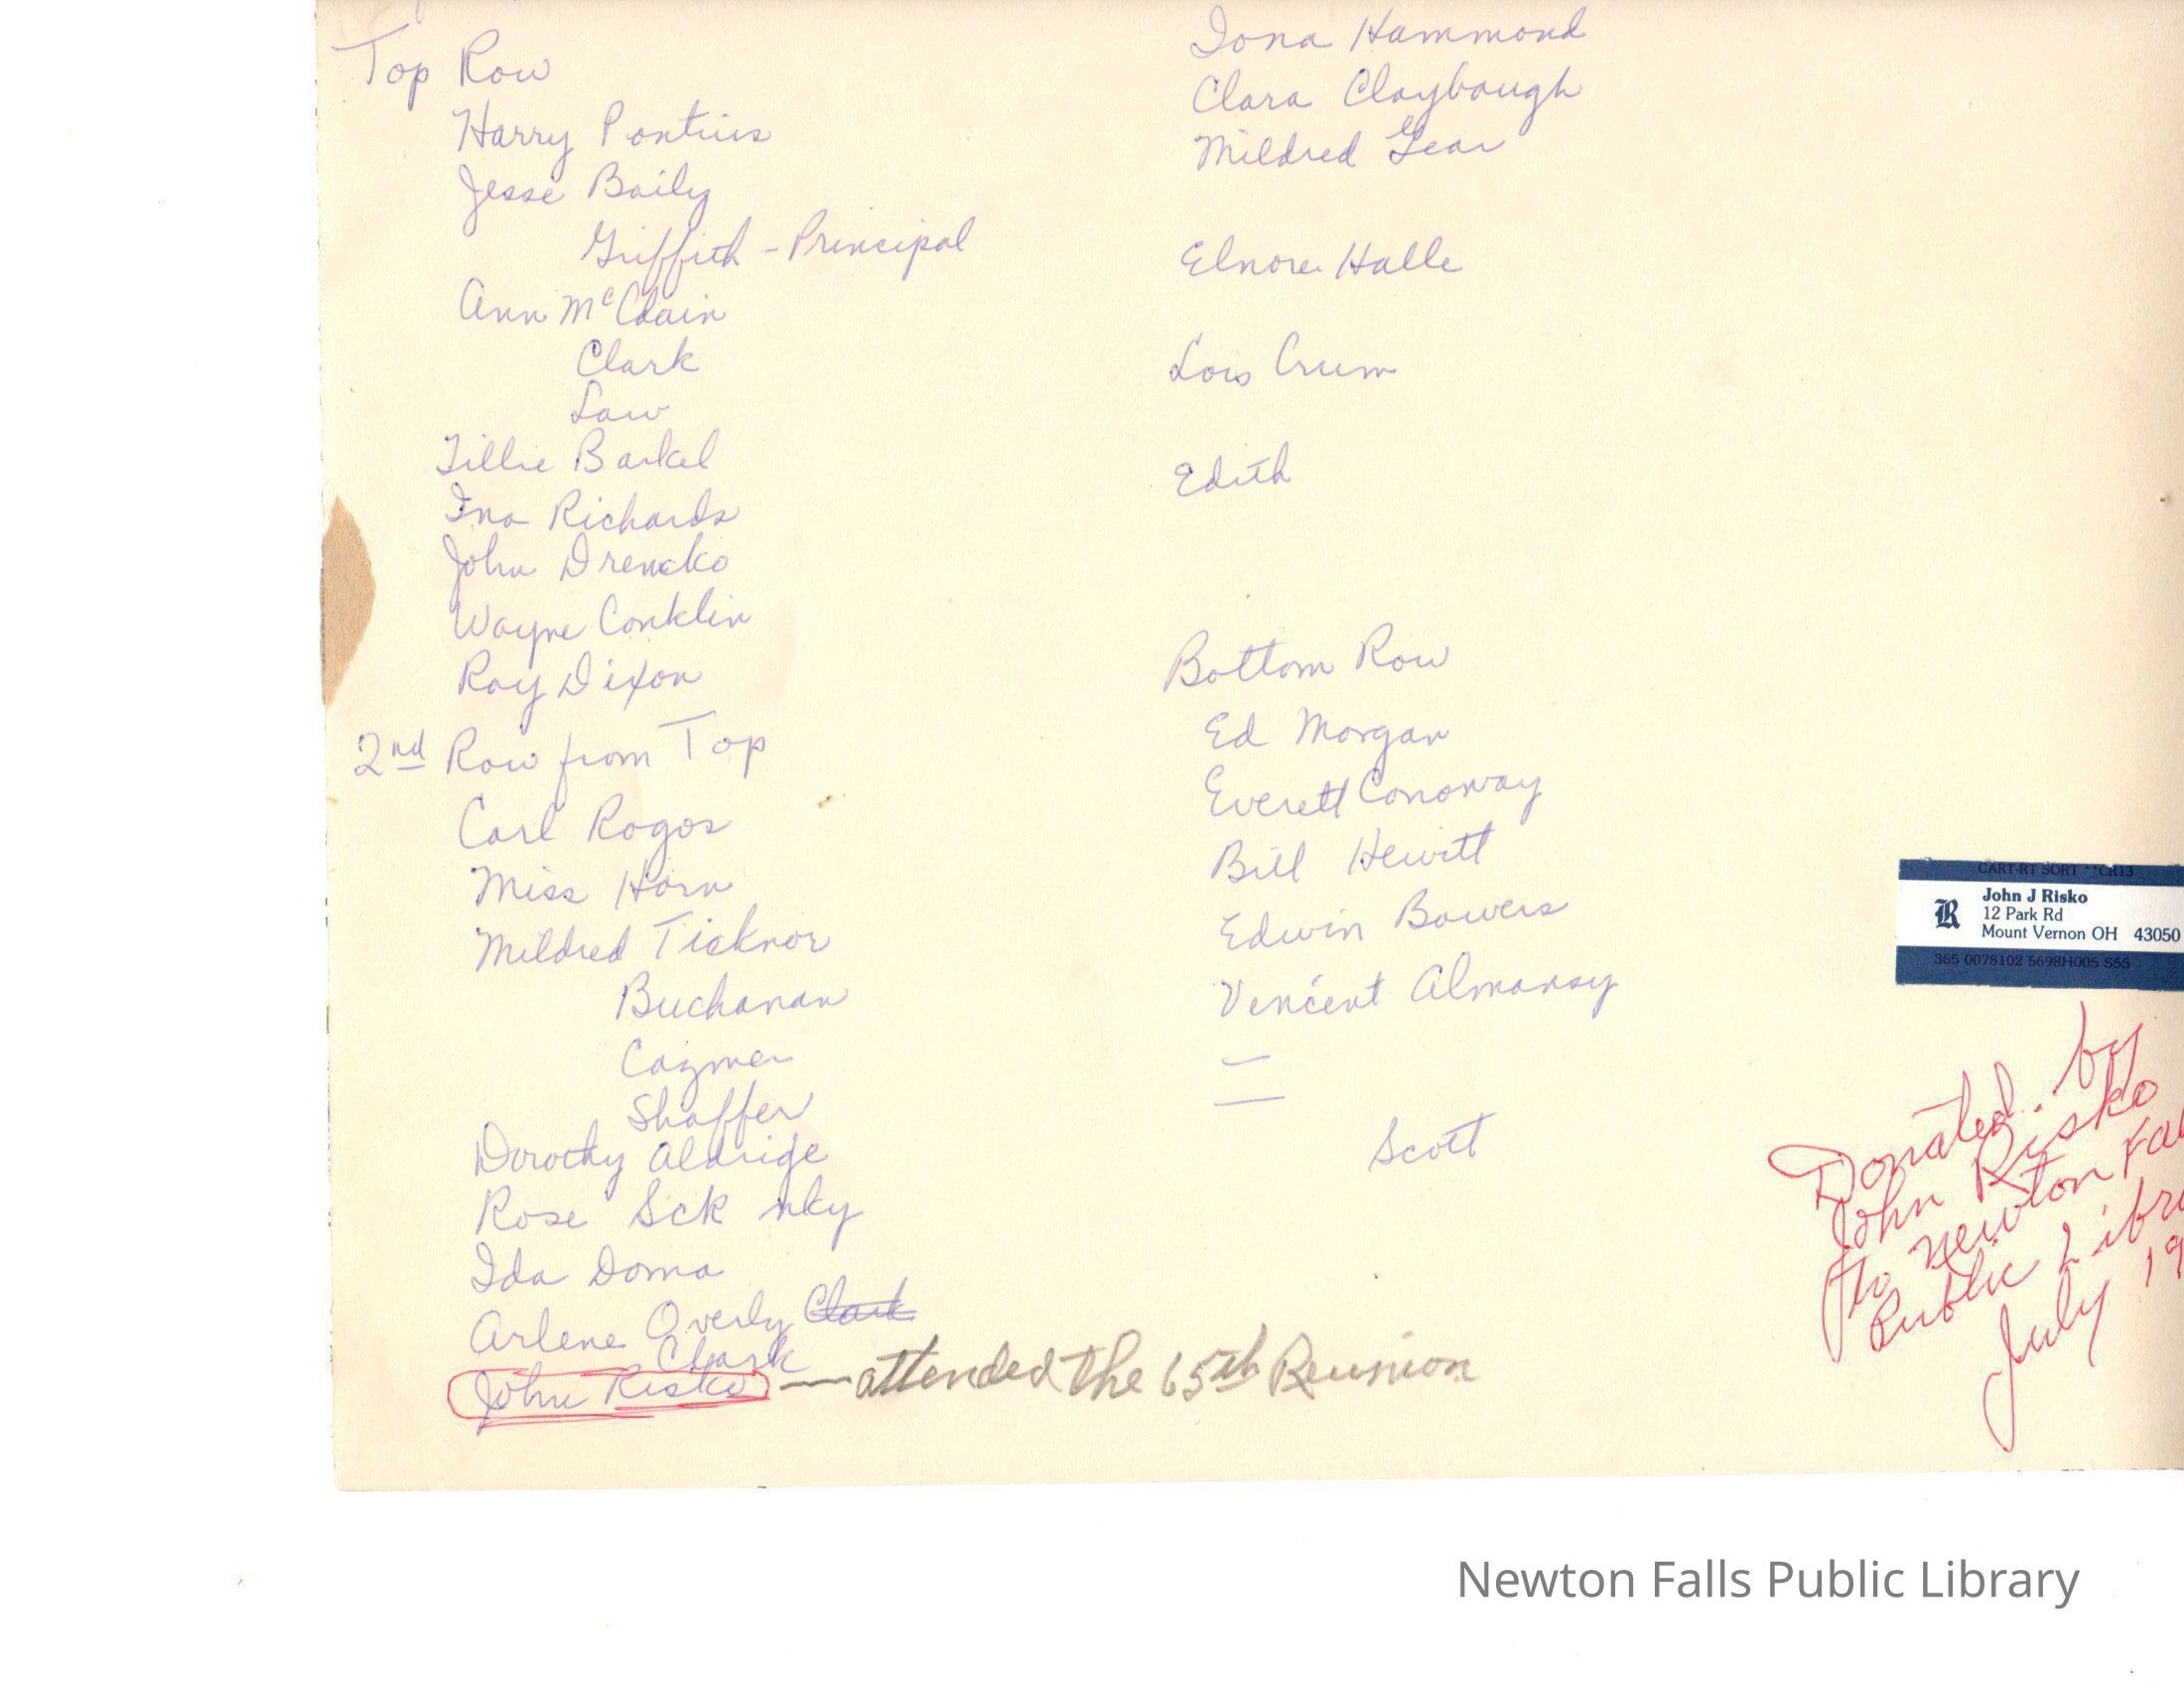 Top Row
Harry Pontius
Jesse Baily
Griffith - Principal
Ann McClain
Clark
Law
Tillie Barkel
Ina Richards
John Drencko
Wayne Conklin
Roy Dixon
2nd Row from Top
Carl Rogos
Miss Horn
Mildred Ticknor
Buchanan
Cazmer
Shaffer
Dorothy Aldrige
Rose Sck nky
Ida Doma
Arlene Overly Clark
Clark
John Risko — attended the 65th Reunion
Iona Hammond
Clara Claybaugh
Mildred Gear
Elnore Halle
Lois Crum
Edith
Bottom Row
Ed Morgan
Everett Conoway
Bill Hewitt
Edwin Bowers
Vincent Almansy
—
—
Scott
CART-RT SORT **CR13
R
John J Risko
12 Park Rd
Mount Vernon OH 43050
365 0078102 5698H005 S55
Donated by
John Risko
to Newton Fal
Public Libr
July 19
Newton Falls Public Library